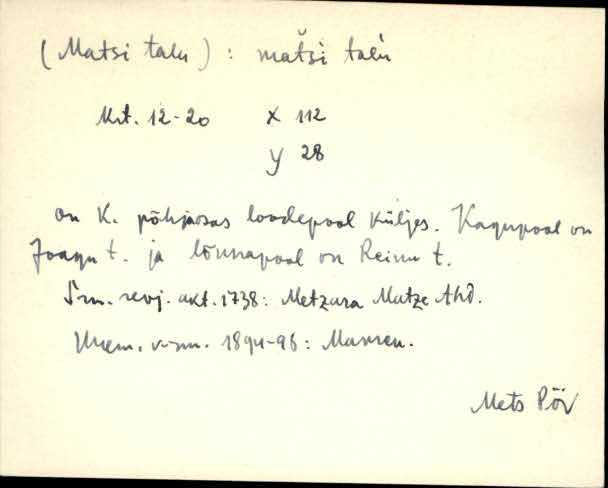 (Matsi talu) : matši talu
Krt. 12-20 x 112
y 28
on K. põhjaosas loodepool küljes. Kagupool on
Jaagu t. ja lõunapool on Reinu t.
revj. akt. 1738: Metzara Matze Ahd.
1894-96:
Mets Pöi